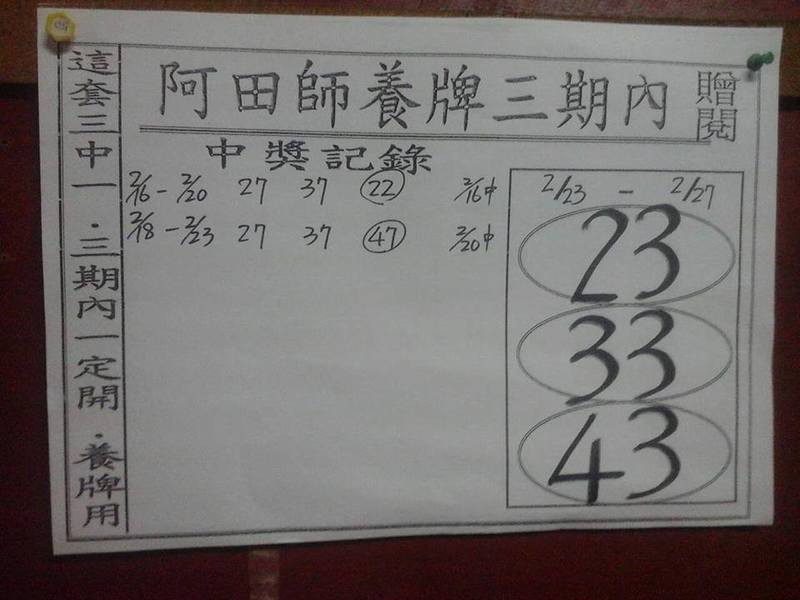 阿田師養牌三期內
贈閱
這套三中一．三期內一定開．養牌用
中獎記錄
2/16 - 2/20 27 37 22 2/16中
2/18 - 2/23 27 37 47 2/20中
2/23 - 2/27
23
33
43